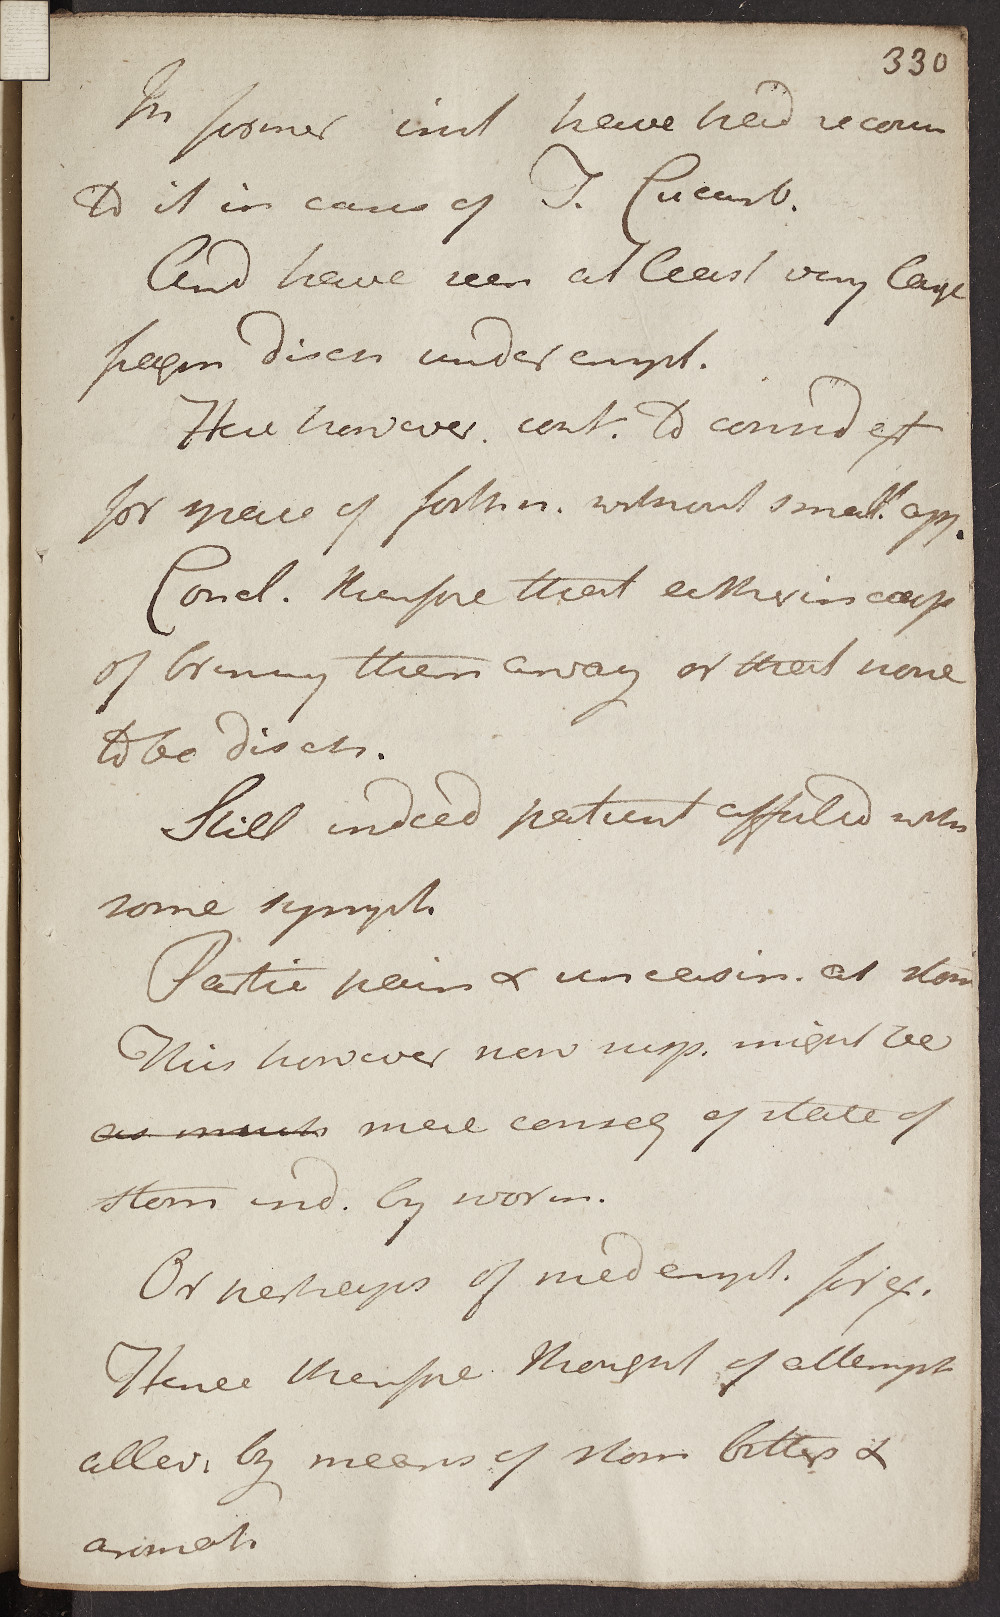 330
In former inst have had recour
to it in cases of T. Cucurb.
And have seen at least very large
fragm disch under empl.
Here however. cont. to consid ext
for space of fortn. without small. app.
Concl. therefore that either incap
of bringing them away or that none
to be disch.
Still indeed patient affected with
some sympt.
Partic pain & uneasin. at stom
This however now susp. might be
as much mere conseq of state of
stom ind. by worm.
Or perhaps of med empl. for ex.
Hence therefore thought of attempt
allev. by means of stom bitters &
aromat.